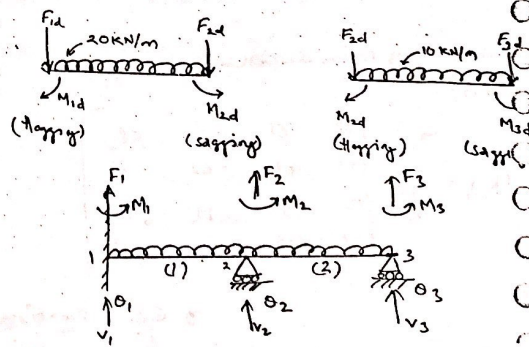 F1d 20KN/m F2d
M1d M2d
(Hogging) (sagging)
F2d 10KN/m F3d
M2d M3d
(Hogging) (saggi
F1 F2 F3
M1 M2 M3
1 (1) 2 (2) 3
θ1 θ2 θ3
v1 v2 v3